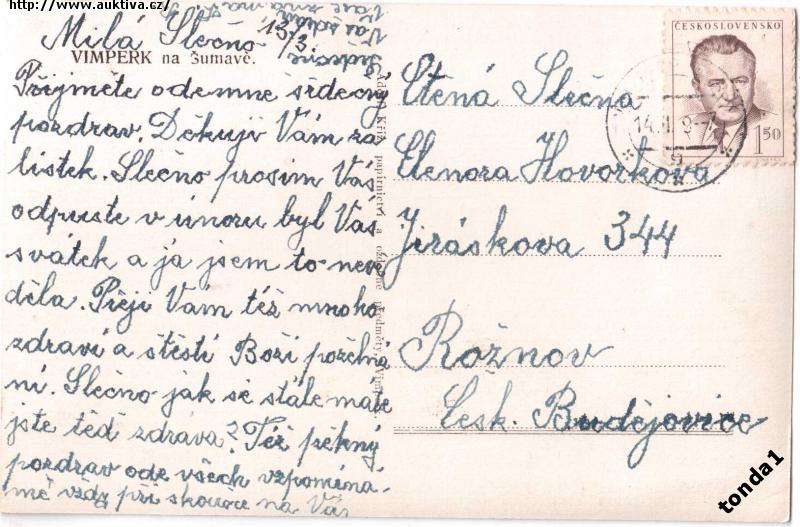 http://www.auktiva.cz/
Milá Slečno
13/3.
VIMPERK na Šumavě.
Přijměte odemne srdečný
pozdrav. Děkuji Vám za
lístek. Slečno prosím Vás
odpuste v únoru byl Váš
svátek a já jsem to neve
děla. Přeji Vám též mnoho
zdraví a štěstí Boží požehná
ní. Slečno jak se stále máte
jste teď zdráva? Též pěkný
pozdrav ode všech vzpomíná
mě vždy při skouřce na Vás
Adolf Kříž, papírnictví a ozdobné předměty, Vim
ČESKOSLOVENSKO
1.50
14.
Ctěná Slečna
Elenora Hovorkova
Jiráskova 344
Rožnov
Česk. Budějovice
tonda1